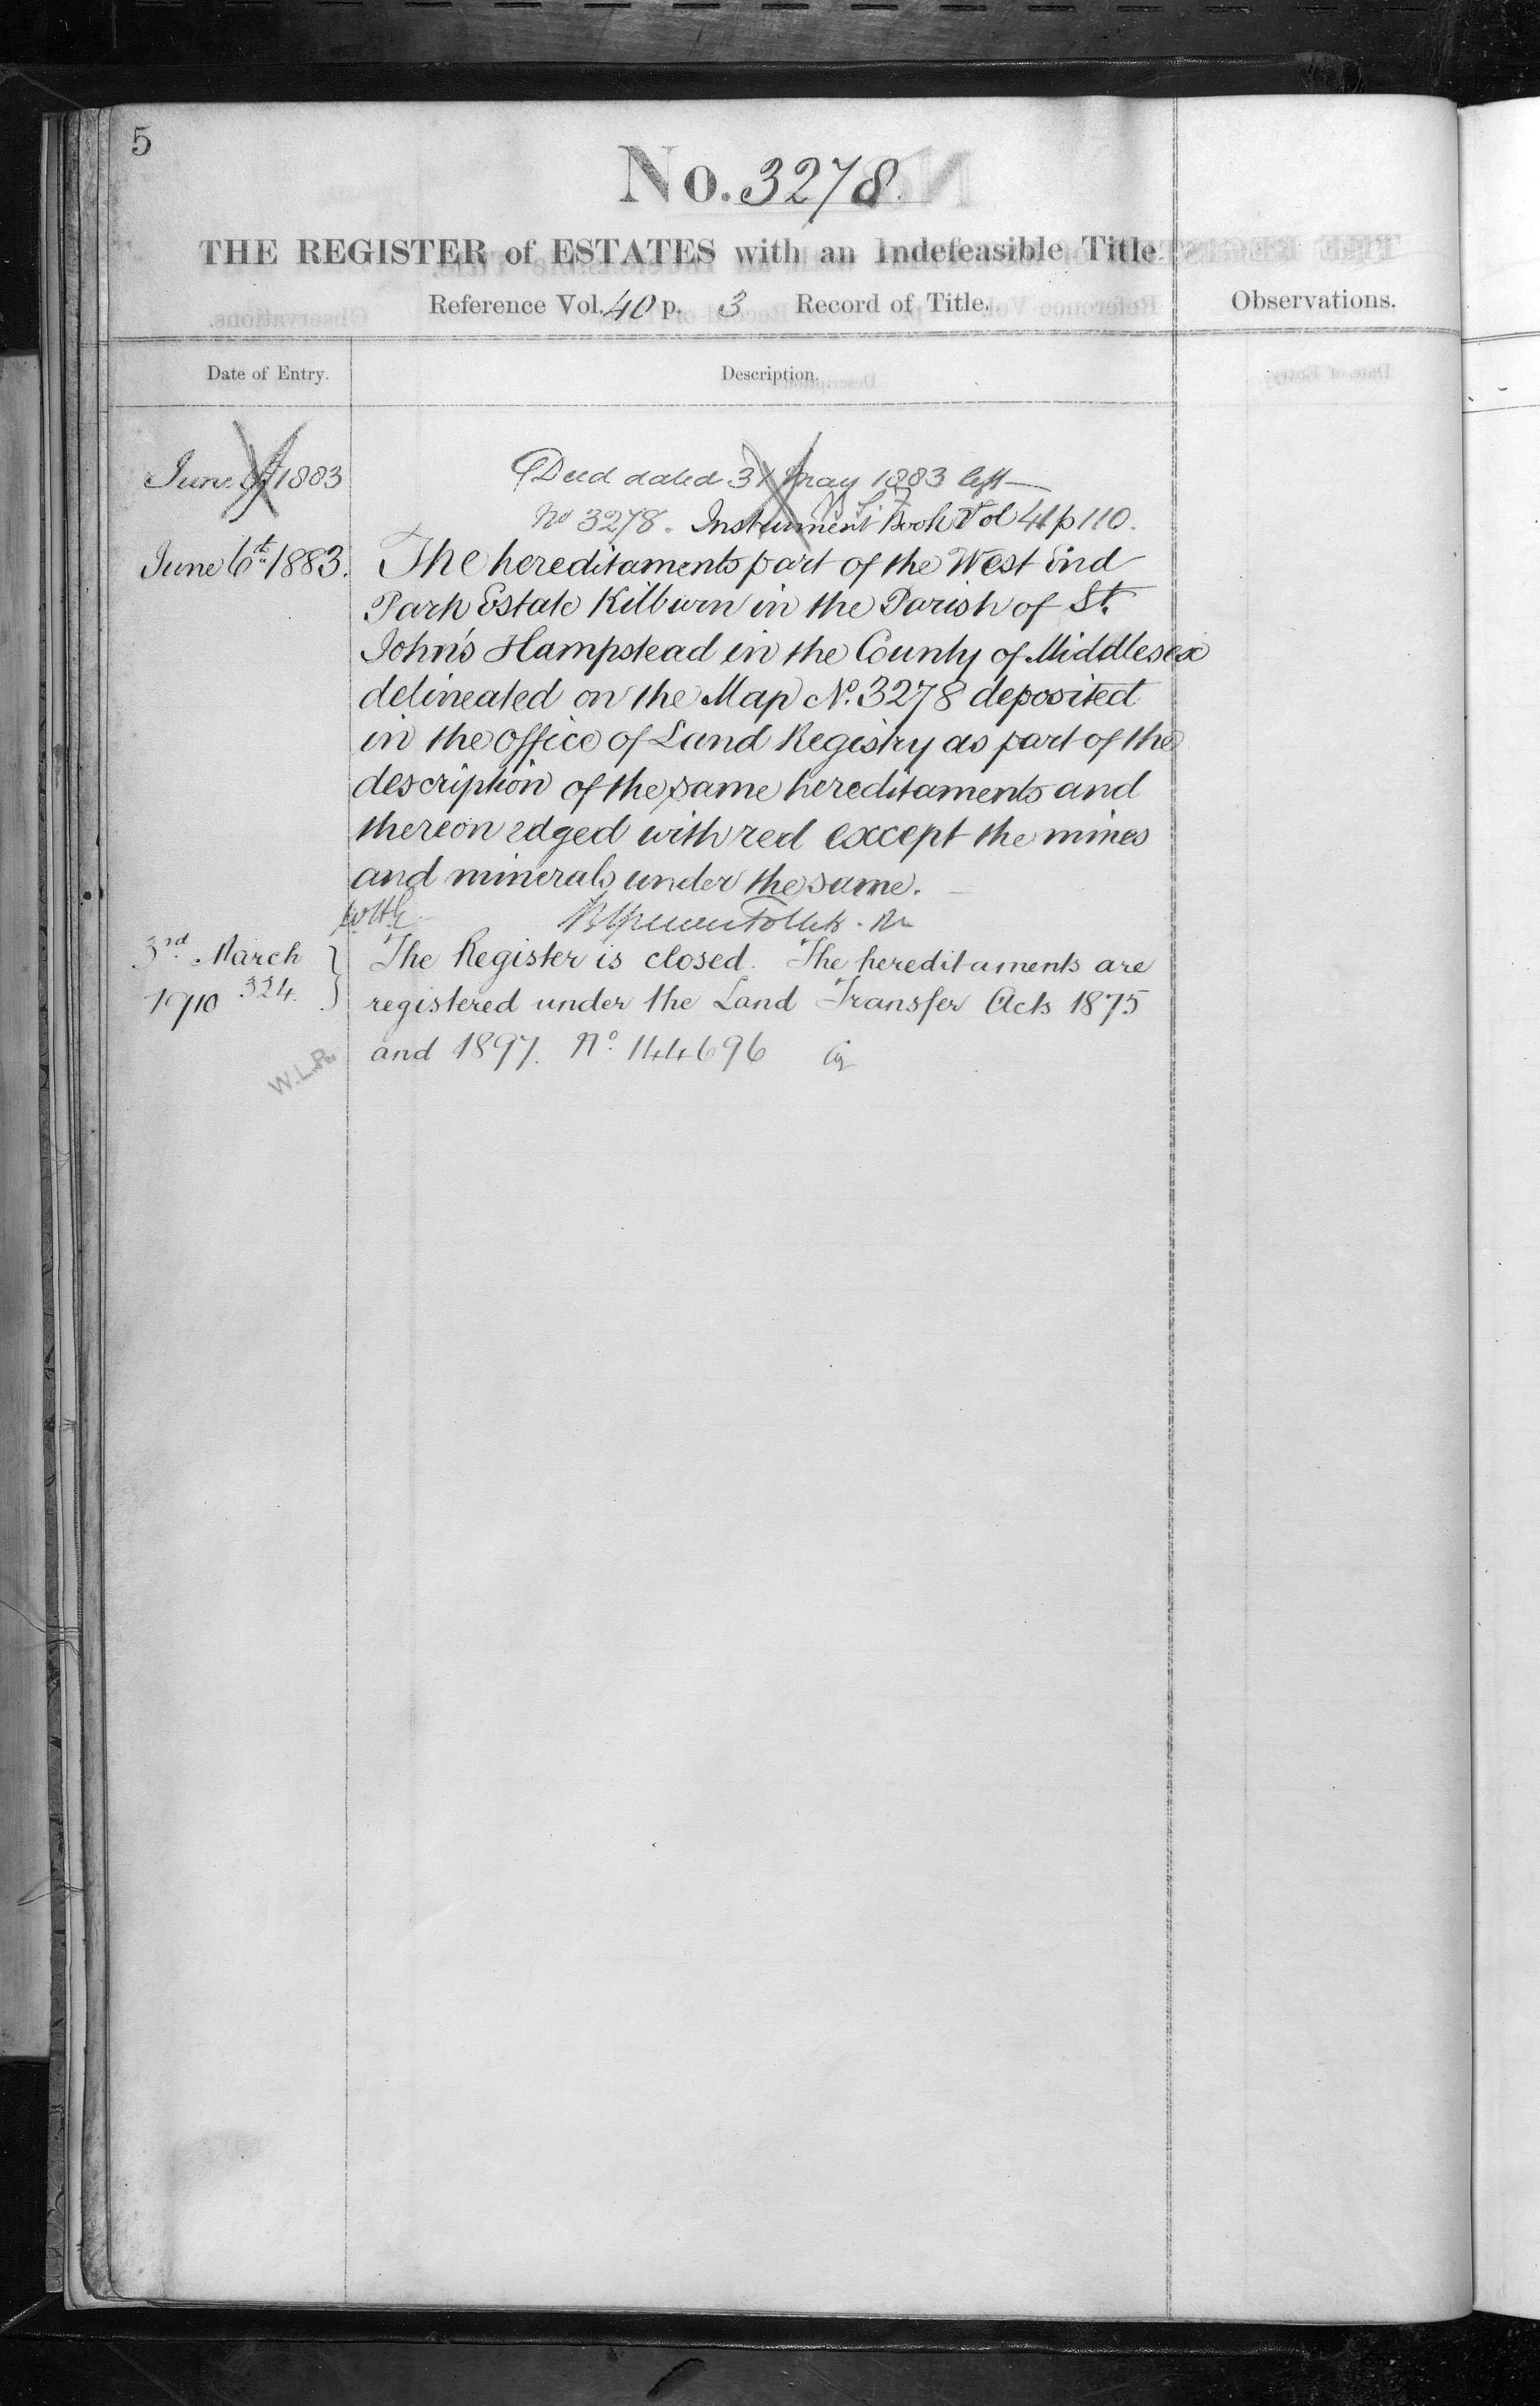 5
No. 3278.
THE REGISTER of ESTATES with an Indefeasible Title
Reference Vol. 40 p. 3 Record of Title.
Observations.
Date of Entry.
Description.
June 1883
Deed dated 31 May 1883 left
No 3278. Instrument Book Vol 41 p 110.
June 6th 1883.
The hereditaments part of the West End
Park Estate Kilburn in the Parish of St.
John's Hampstead in the County of Middlesex
delineated on the Map No. 3278 deposited
in the office of Land Registry as part of the
description of the same hereditaments and
thereon edged with red except the mines
and minerals under the same.
3rd March
1910 324.
The Register is closed. The hereditaments are
registered under the Land Transfer Acts 1875
and 1897. No. 144696
W.L.R.